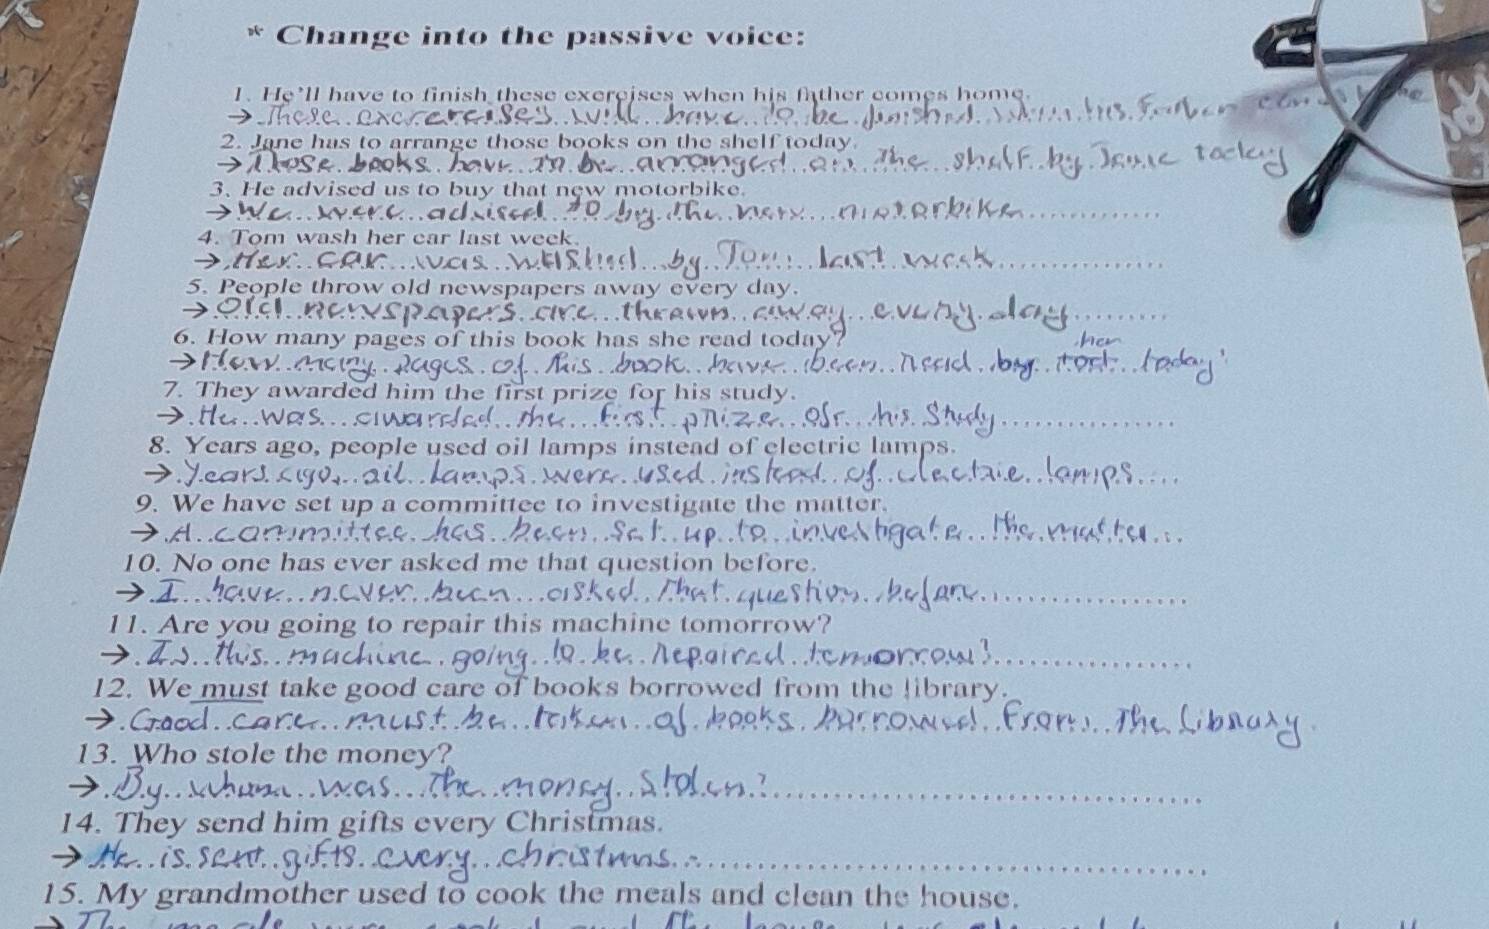 * Change into the passive voice:
1. He'll have to finish these exercises when his father comes home.
→ These exercrercises will have to be finished when his father comes home
2. Jane has to arrange those books on the shelf today.
→ Those books have to be arranged on the shelf by Jane today
3. He advised us to buy that new motorbike.
→ We were advised to buy the new motorbike
4. Tom wash her car last week.
→ Her car was washed by Tom last week
5. People throw old newspapers away every day.
→ Old newspapers are thrown away every day
6. How many pages of this book has she read today?
her
→ How many pages of this book have been read by today?
7. They awarded him the first prize for his study.
→ He was awarded the first prize his study
8. Years ago, people used oil lamps instead of electric lamps.
→ Years ago, oil lamps were used instead of electric lamps
9. We have set up a committee to investigate the matter.
→ A committee has been set up to investigate the matter
10. No one has ever asked me that question before.
→ I have never been asked that question before
11. Are you going to repair this machine tomorrow?
→ Is this machine going to be repaired tomorrow?
12. We must take good care of books borrowed from the library.
→ Good care must be taken of books borrowed from the library
13. Who stole the money?
→ By whom was the money stolen?
14. They send him gifts every Christmas.
→ He is sent gifts every christmas.
15. My grandmother used to cook the meals and clean the house.